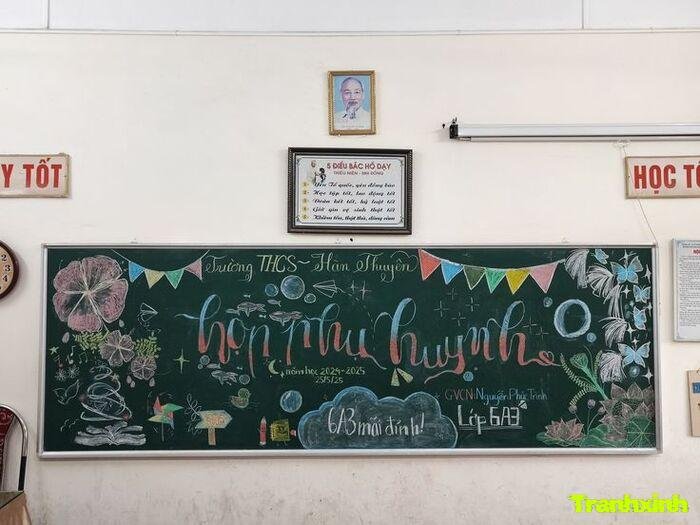 5 ĐIỀU BÁC HỒ DẠY
THIẾU NIÊN - NHI ĐỒNG
1 Yêu Tổ quốc, yêu đồng bào
2 Học tập tốt, lao động tốt
3 Đoàn kết tốt, kỷ luật tốt
4 Giữ gìn vệ sinh thật tốt
5 Khiêm tốn, thật thà, dũng cảm
Y TỐT
HỌC TỐ
Trường THCS - Hàn Thuyên
họp phụ huynh
năm học 2024-2025
25/5/25
GVCN: Nguyễn Phúc Trinh
Lớp 6A3
6A3 mãi đỉnh!
Tranhxinh